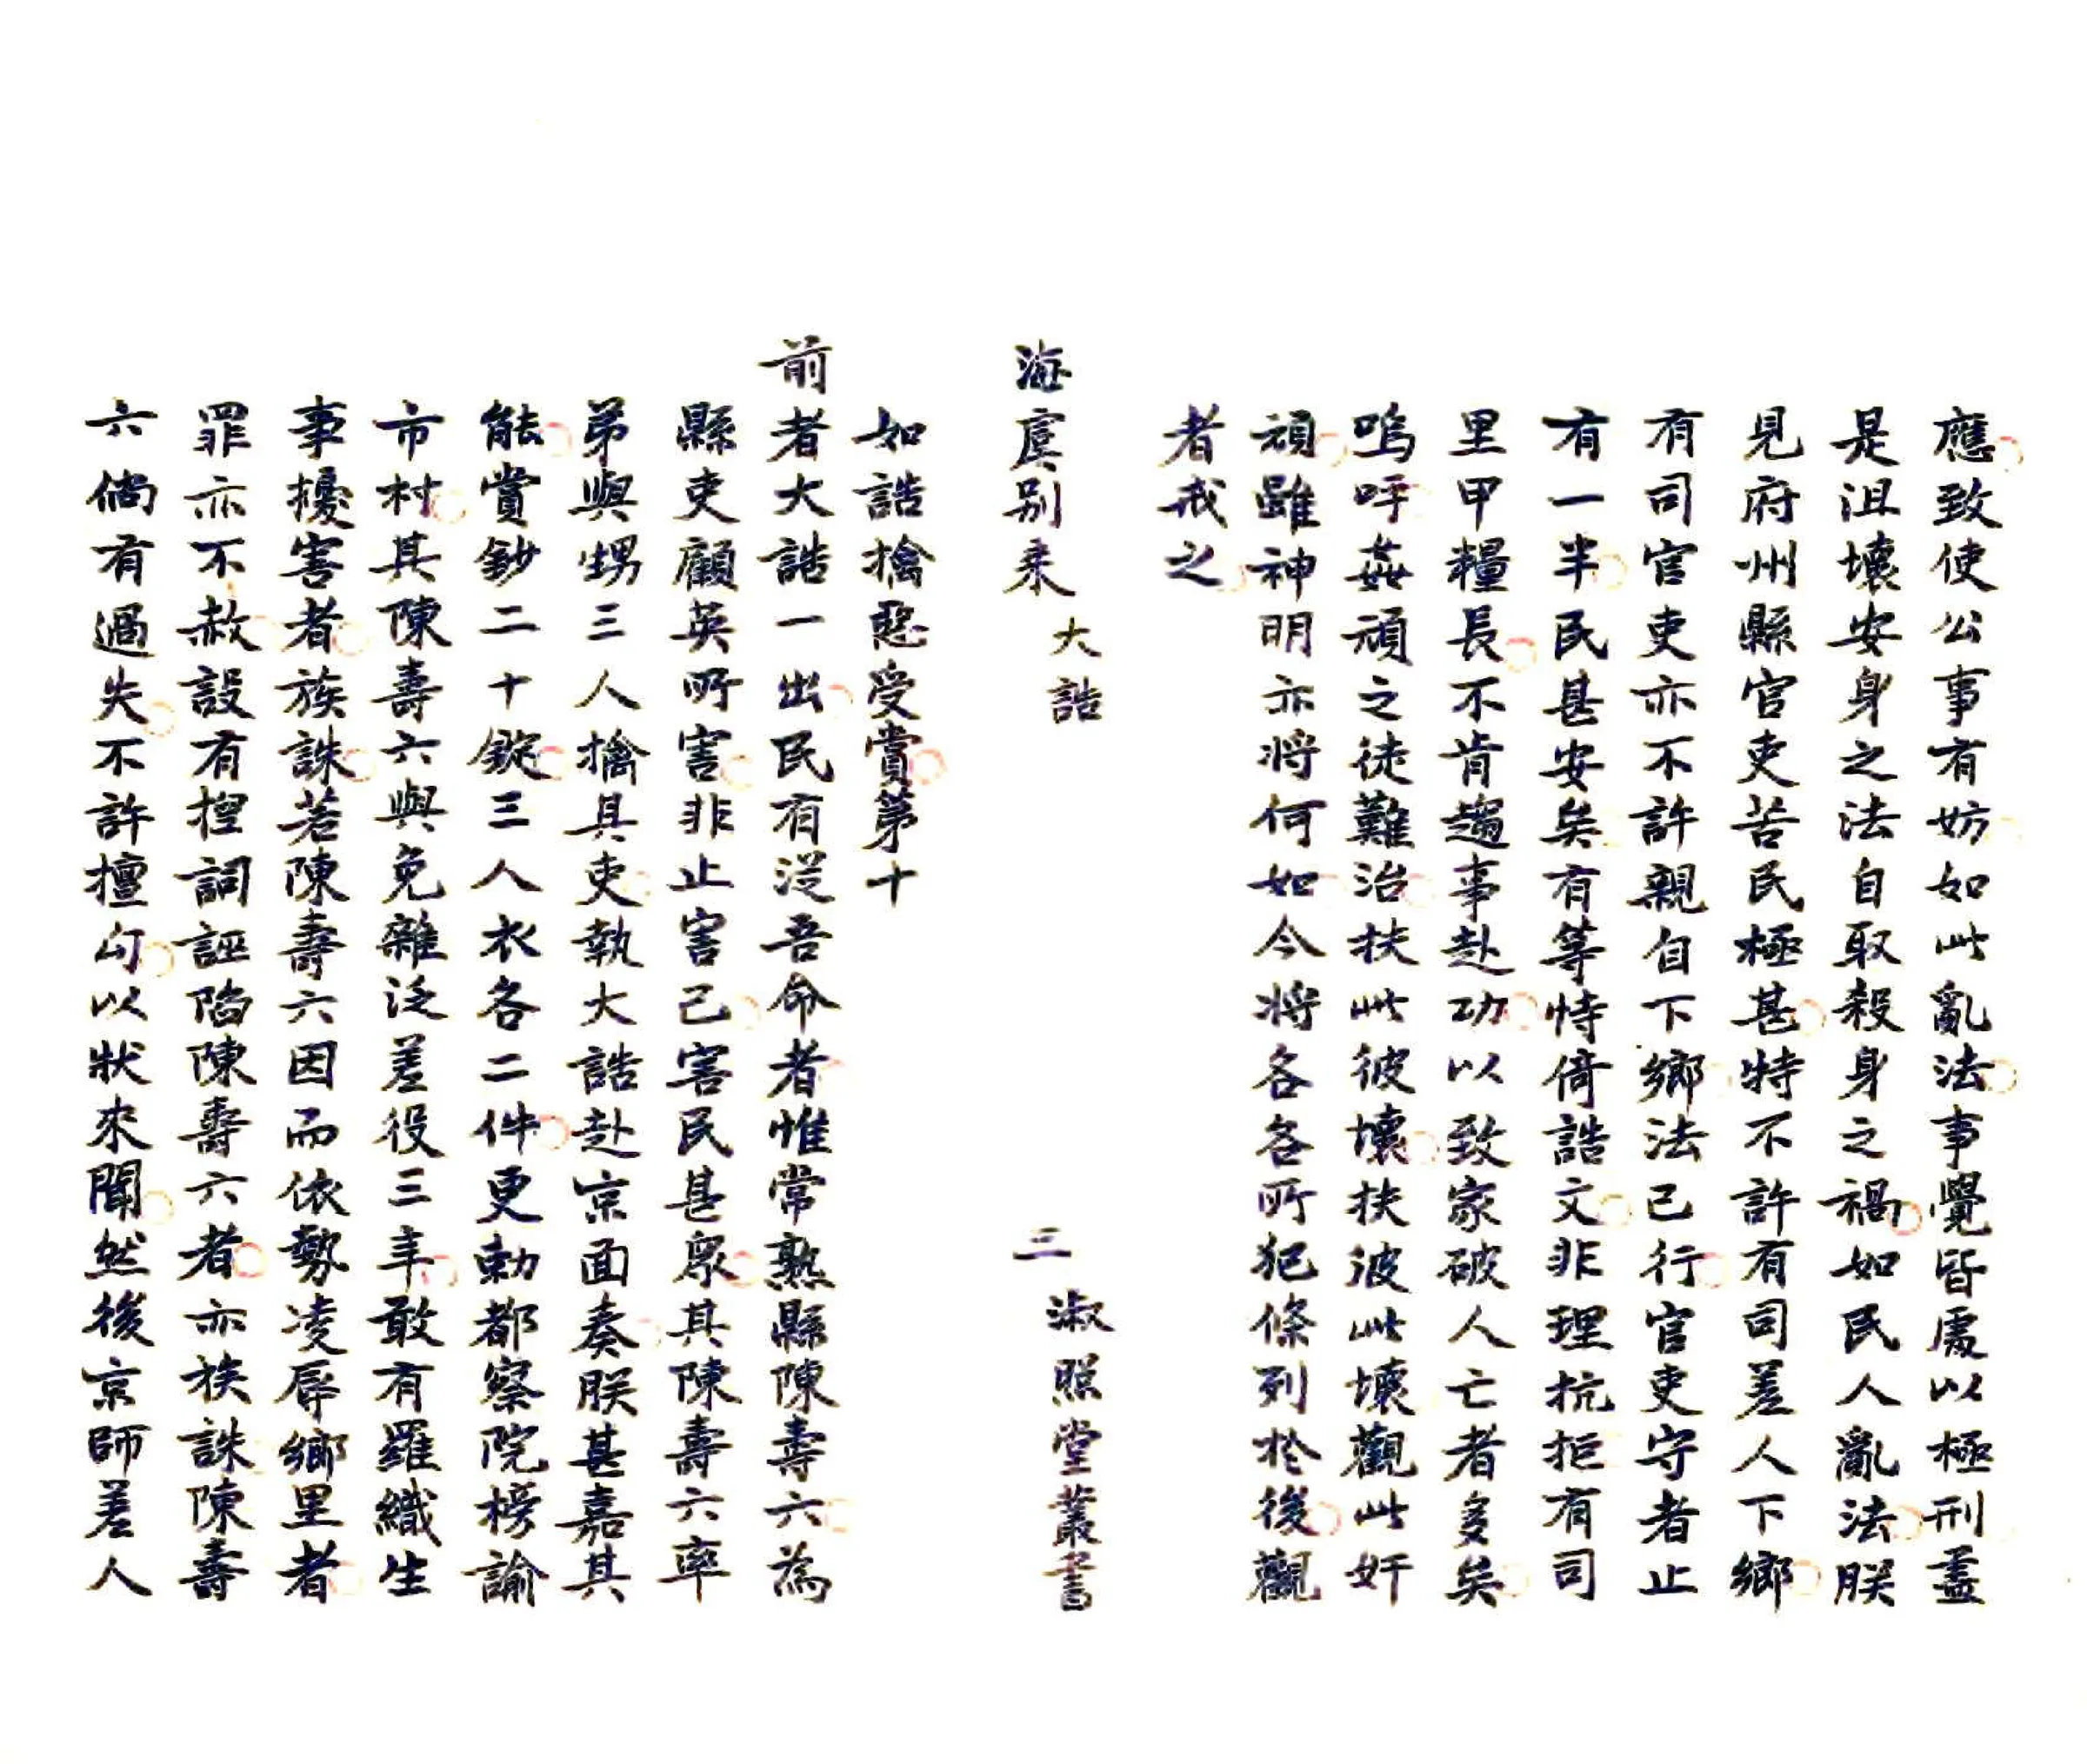 應致使公事有妨如此亂法事覺皆處以極刑盡
是沮壞安身之法自取殺身之禍如民人亂法朕
見府州縣官吏苦民極甚特不許有司差人下鄉
有司官吏亦不許親自下鄉法已行官吏守者止
有一半民甚安矣有等恃倚誥文非理抗拒有司
里甲糧長不肯趨事赴功以致家破人亡者多矣
嗚呼姦頑之徒難治扶此彼壞扶彼此壞觀此奸
頑雖神明亦將何如今將各各所犯條列於後觀
者戒之
海虞别乘 大誥 三 淑照堂叢書
如誥擒惡受賞第十
前者大誥一出民有從吾命者惟常熟縣陳壽六為
縣吏顧英所害非止害己害民甚眾其陳壽六率
弟與甥三人擒其吏執大誥赴京面奏朕甚嘉其
能賞鈔二十錠三人衣各二件更勅都察院榜諭
市村其陳壽六與免雜泛差役三年敢有羅織生
事擾害者族誅若陳壽六因而依勢凌辱鄉里者
罪亦不赦設有捏詞誣陷陳壽六者亦族誅陳壽
六倘有過失不許擅勾以狀來聞然後京師差人